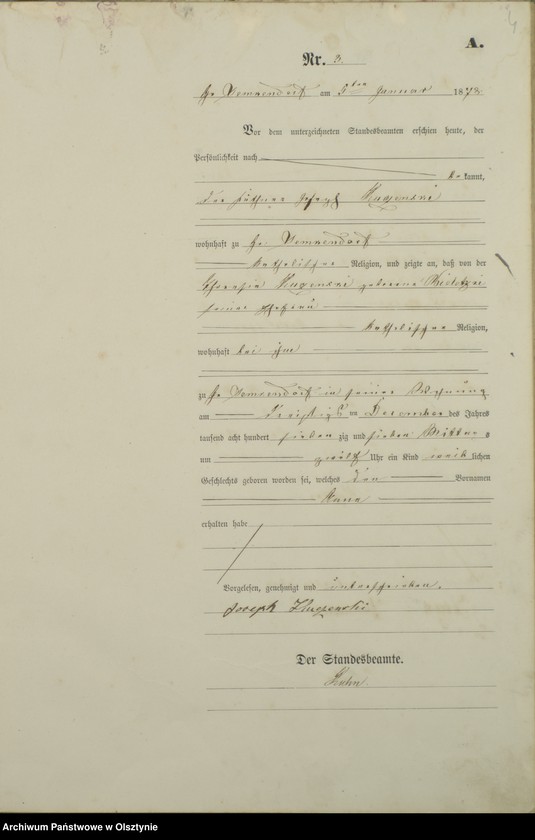 A.
Nr. 3.
am 3ten Januar 1878.
Vor dem unterzeichneten Standesbeamten erschien heute, der
Persönlichkeit nach
be kannt,
der Käthner Joseph
wohnhaft zu Gr.
katholischer Religion, und zeigte an, daß von der
geborene
seiner Ehefrau
katholischer Religion,
wohnhaft bei ihm
zu Gr. in seiner Wohnung
am ten December des Jahres
tausend acht hundert sieben zig und sieben Mittags
um zwölf Uhr ein Kind weib lichen
Geschlechts geboren worden sei, welches den Vornamen
Anna
erhalten habe
Vorgelesen, genehmigt und unterschrieben.
Joseph
Der Standesbeamte.
Archiwum Państwowe w Olsztynie